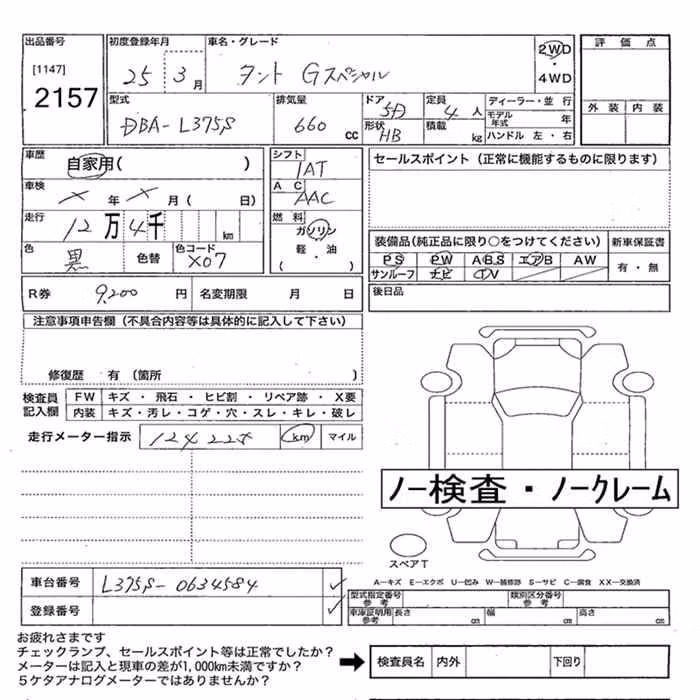 出品番号 初度登録年月 車名・グレード 評価点
[1147] 2157 25 3月 タント Gスペシャル 2WD・4WD
外装 内装
型式 排気量 ドア 5D 定員 4人 ディーラー・並行
DBA-L375S 660cc 形状 HB 積載 kg モデル年式 年
ハンドル 左・右
車歴 自家用( ) シフト IAT セールスポイント(正常に機能するものに限ります)
車検 × 年 × 月( 日) AC AAC
走行 12万4千 km 燃料 ガソリン
軽・油
( )
色 黒 色替 色コード X07
装備品(純正品に限り○をつけてください) 新車保証書
PS PW ABS エアB AW 有・無
サンルーフ ナビ TV
R券 9,200円 名変期限 月 日 後日品
注意事項申告欄(不具合内容等は具体的に記入して下さい)
修復歴 有(箇所
検査員記入欄 FW キズ・飛石・ヒビ割・リペア跡・X要
内装 キズ・汚レ・コゲ・穴・スレ・キレ・破レ
走行メーター指示 124225 km マイル
ノー検査・ノークレーム
スペアT
A―キズ E―エクボ U―凹み W―補修跡 S―サビ C―腐食 XX―交換済
車台番号 L375S-0634584
登録番号
型式指定番号 参考 類別区分番号 参考
車庫証明用 参考 長さ cm 幅 cm 高さ cm
お疲れさまです
チェックランプ、セールスポイント等は正常でしたか?
メーターは記入と現車の差が1,000km未満ですか?
5ケタアナログメーターではありませんか?
➡ 検査員名 内外 下回り